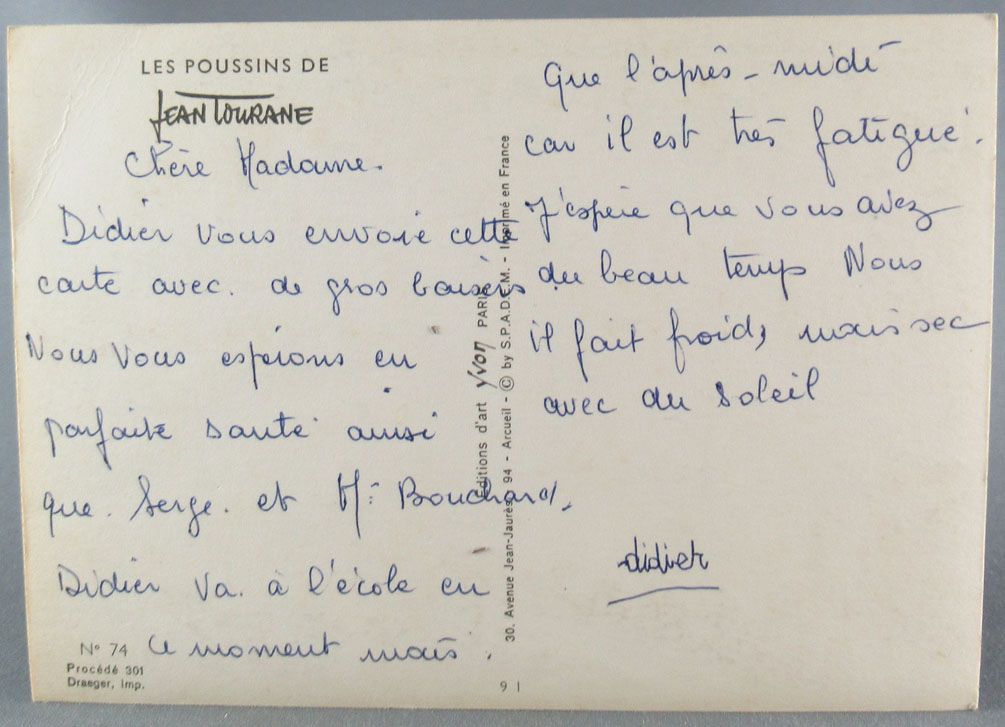 LES POUSSINS DE
JEAN TOURANE
Chère Madame.
Didier vous envoie cette
carte avec. de gros baisers
Nous Vous espérons en
parfaite santé ainsi
que. Serge. et Mr Bouchard.
Didier Va. à l'école en
ce moment mais.
N° 74
Procédé 301
Draeger, Imp.
Editions d'art Yvon PARIS
30, Avenue Jean-Jaurès, 94 - Arcueil - © by S.P.A.D.E.M. - Imprimé en France
9 1
que l'après-midi
car il est très fatigué.
J'espère que vous avez
du beau temps Nous
il fait froid, mais sec
avec du soleil
didier